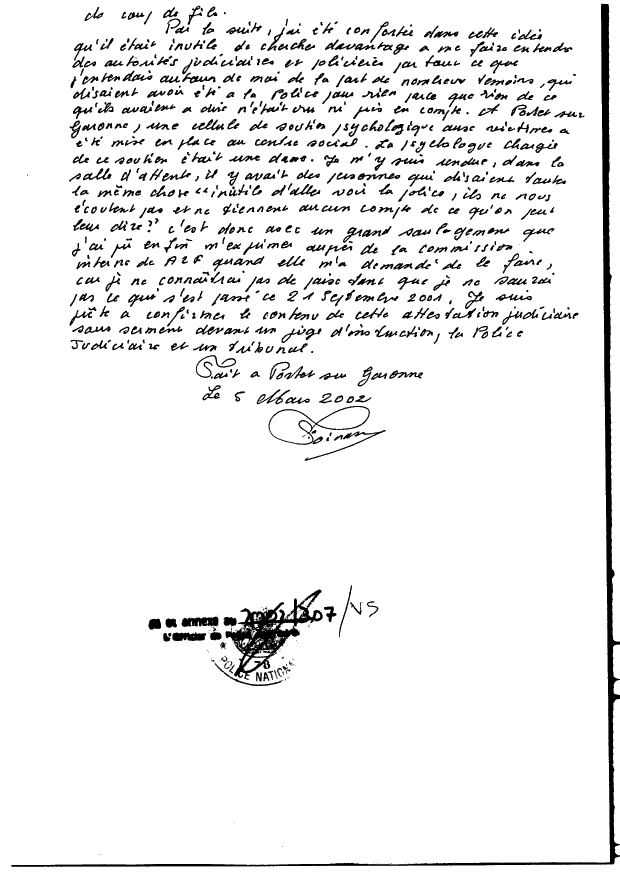 de coup de file.
Par la suite, j'ai été confortée dans cette idée
qu'il était inutile de chercher davantage a me faire entendre
des autorités judiciaires et policières par tout ce que
j'entendais autour de moi de la part de nombreux temoins, qui
disaient avoir été a la Police pour rien parce que rien de ce
qu'ils avaient a dire n'était cru ni pris en compte. A Portet sur
Garonne, une cellule de soutien psychologique aux victimes a
été mise en place au centre social. La psychologue chargée
de ce soutien était une dame. Je m'y suis rendue, dans la
salle d'attente, il y avait des personnes qui disaient toutes
la même chose "inutile d'aller voir la police, ils ne nous
écoutent pas et ne tiennent aucun compte de ce qu'on peut
leur dire". c'est donc avec un grand soulagement que
j'ai pû enfin m'exprimer auprès de la commission
interne de AZF quand elle m'a demandé de le faire,
car je ne connaîtrai pas de paix tant que je ne saurai
pas ce qui s'est passé ce 21 Septembre 2001. Je suis
prête a confirmer le contenu de cette attestation judiciaire
sous serment devant un juge d'instruction, la Police
Judiciaire et un Tribunal.
Fait a Portet sur Garonne
Le 5 Mars 2002
et annexé au 2002/307/VS
L'Officier de
POLICE NATIONALE
78